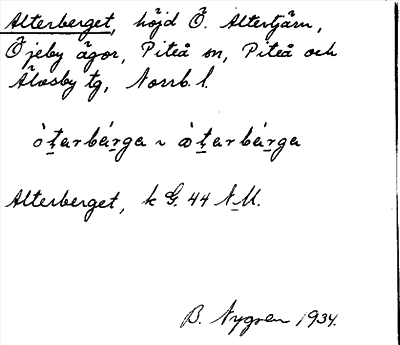 Alterberget, höjd Ö. Altertjärn,
Öjeby ägor, Piteå sn, Piteå och
Älvsby tg, Norrb. l.
òṯarbáṟga ~ òṯarbáṟga
Alterberget, k G. 44 N.M.
B. Nygren 1934.